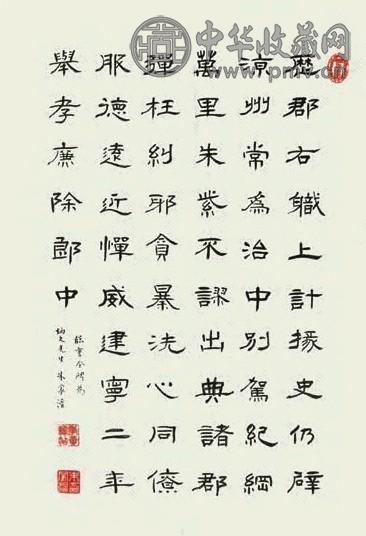 中华收藏网
歷郡右職上計掾史仍辟
涼州常為治中別駕紀綱
萬里朱紫不謬出典諸郡
彈枉糾邪貪暴洗心同僚
服德遠近憚威建寧二年
舉孝廉除郎中
臨曹全碑為
文先生 朱家濟